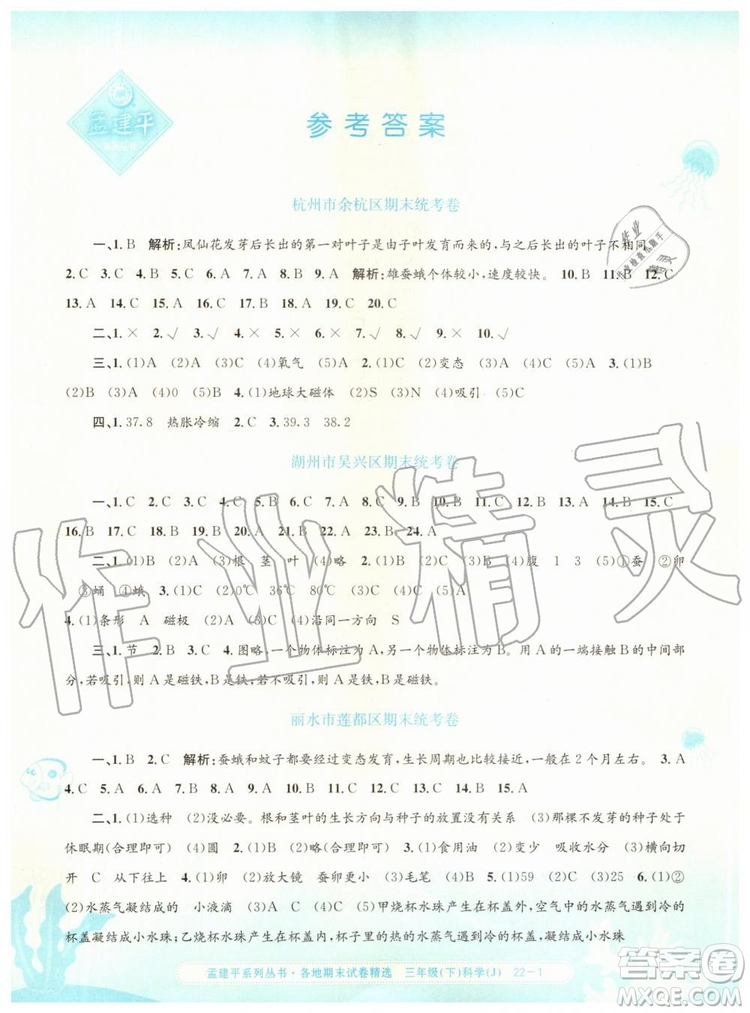 孟建平
参考答案
杭州市余杭区期末统考卷
一、1. B 解析:凤仙花发芽后长出的第一对叶子是由子叶发育而来的,与之后长出的叶子不相同。
2. C 3. C 4. A 5. A 6. B 7. A 8. B 9. A 解析:雄蚕蛾个体较小,速度较快。 10. B 11. B 12. C
13. A 14. C 15. A 16. C 17. B 18. A 19. C 20. C
二、1. × 2. √ 3. √ 4. × 5. √ 6. √ 7. × 8. × 9. √ 10. √
三、1. (1)A (2)C (3)A (4)氧气 2. (1)B (2)变态 (3)A (4)B 3. (1)B
(2)B (3)A (4)0 (5)B 4. (1)地球大磁体 (2)S (3)N (4)吸引
四、1. 37.8 热胀冷缩 2. C 3. 39.3 38.2
湖州市吴兴区期末统考卷
一、1. C 2. C 3. C 4. B 5. A 6. B 7. A 8. C 9. B 10. B 11. B 12. A 13. B 14. B 15. C
16. B 17. C 18. C 19. A 20. B 21. A 22. A 23. B 24. A
二、1. (1)B (2)A (3)根 茎 叶 (4)略 2. (1)B (2)C (3)B (4)腹 1 3 (5)①蚕 ②卵
③蛹 ④蛾 3. (1)C (2)0℃ 36℃ 80℃ (3)B (4)A (5)C
4. (1)条形 A 磁极 (2)S (3)A (4)沿同一方向 S
三、1. 节 2. B 3. C 4. 图略,一个物体标注为A,另一个物体标注为B。用A的一端接触B的中间部
分,若吸引,则A是磁铁,B是铁棒;若不吸引,则A是铁棒,B是磁铁。
丽水市莲都区期末统考卷
一、1. B 2. C 解析:蚕蛾和蚊子都要经过变态发育,生长周期也比较接近,一般为2个月左右。 3. A
4. C 5. A 6. C 7. A 8. B 9. B 10. A 11. C 12. B 13. C 14. B 15. A
二、1. (1)选种 (2)没必要。根和茎叶的生长方向与种子的放置没有关系 (3)那棵不发芽的种子处于
休眠期(合理即可) (4)圆 2. (1)B (2)C 3. (1)食用油 (2)变少 吸水 (3)B 4. (1)横向
开 C 从下往上 (2)放大镜 蚕卵更小 (3)毛笔 (4)B 5. (1)59 (2)C (3)25 6. (1)②
(2)水蒸气凝结成的 小液滴 (3)甲烧杯水珠产生在杯盖外,空气中的水蒸气遇到冷的
杯盖凝结成小水珠;乙烧杯水珠产生在杯盖内,烧杯内水蒸气遇到冷的杯盖凝结成小水珠
孟建平系列丛书·各地期末试卷精选 三年级(下)科学(J) 22-1
作业精灵
答案卷
MXQE.COM